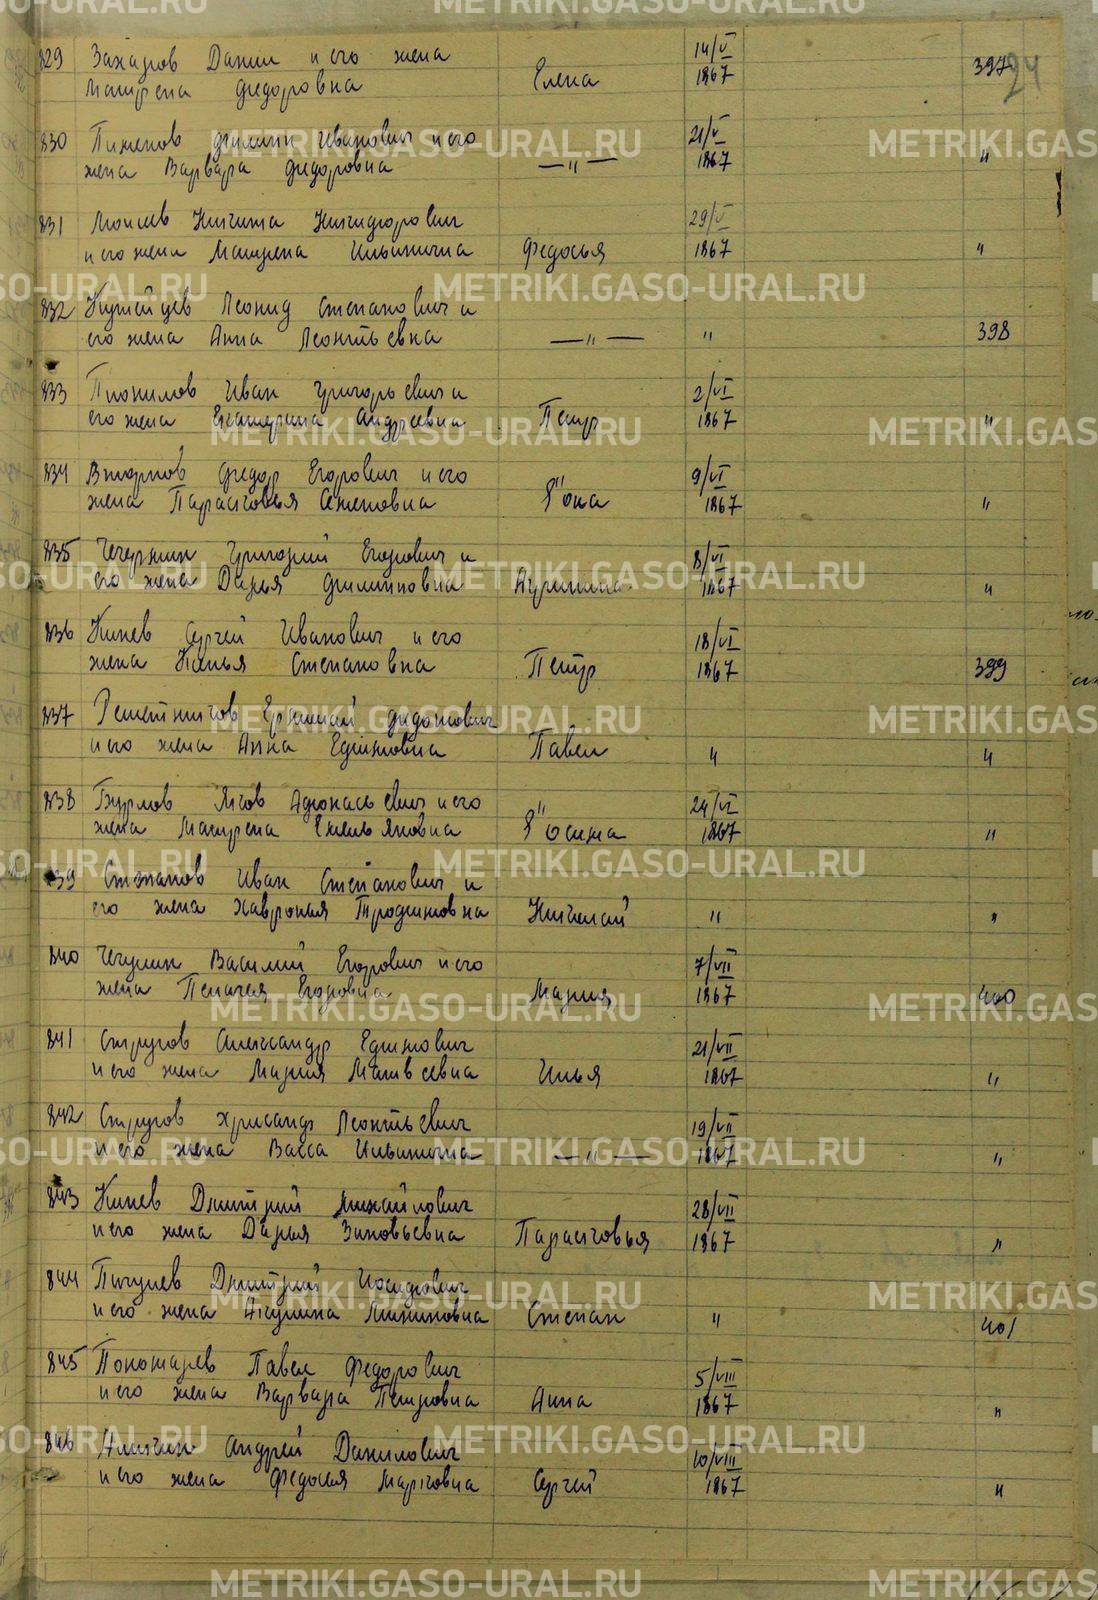 829 Захаров Данил и его жена 14/V 397 94
Матрена Федоровна Елена 1867
830 Пименов Филипп Иванович и его 21/V
жена Варвара Федоровна —"— 1867 "
831 Моисеев Никита Никифорович 29/V
и его жена Матрена Ильинична Федосья 1867 "
832 Леонид Степанович и
его жена Анна Леонтьевна —"— " 398
833 Иван Григорьевич и 2/VI
его жена Екатерина Андреевна Петр 1867 "
834 Федор Егорович и его 9/VI
жена Парасковья Семеновна 1867 "
835 Григорий Егорович и 8/VI
его жена Дарья Филипповна Акулина 1867 "
836 Кинев Сергей Иванович и его 18/VI
жена Степановна Петр 1867 399
837 Решетников Ермолай Федотович
и его жена Анна Ефимовна Павел " "
838 Бурмов Яков Афонасьевич и его 24/VI
жена Матрена Емельяновна 1867 "
839 Степанов Иван Степанович и
его жена Хавронья Трофимовна Николай " "
840 Чечулин Василий Егорович и его 7/VII
жена Пелагея Егоровна Мария 1867 400
841 Стругов Александр Ефимович 21/VII
и его жена Мария Матвеевна Илья 1867 "
842 Стругов Хрисанф Леонтьевич 19/VII
и его жена Васса Ильинична —"— 1867 "
843 Кинев Дмитрий Михайлович 28/VII
и его жена Дарья Зиновьевна Парасковья 1867 "
844 Пичугев Дмитрий Иосифович
и его жена Акулина Миниковна Степан " 401
845 Пономарев Павел Федорович 5/VIII
и его жена Варвара Петровна Анна 1867 "
846 Аликин Андрей Данилович 10/VIII
и его жена Федосья Марковна Сергей 1867 "
METRIKI.GASO-URAL.RU